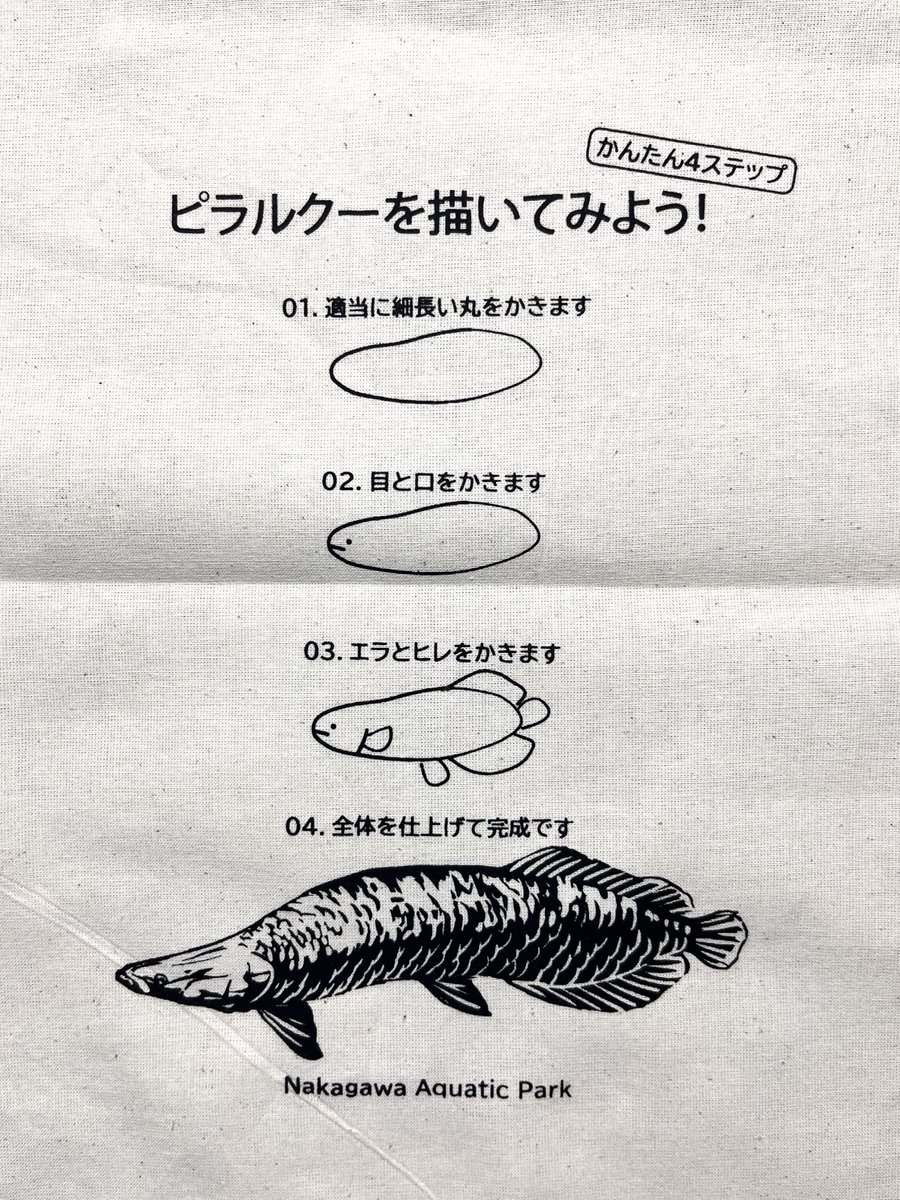 かんたん4ステップ
ピラルクーを描いてみよう!
01. 適当に細長い丸をかきます
02. 目と口をかきます
03. エラとヒレをかきます
04. 全体を仕上げて完成です
Nakagawa Aquatic Park